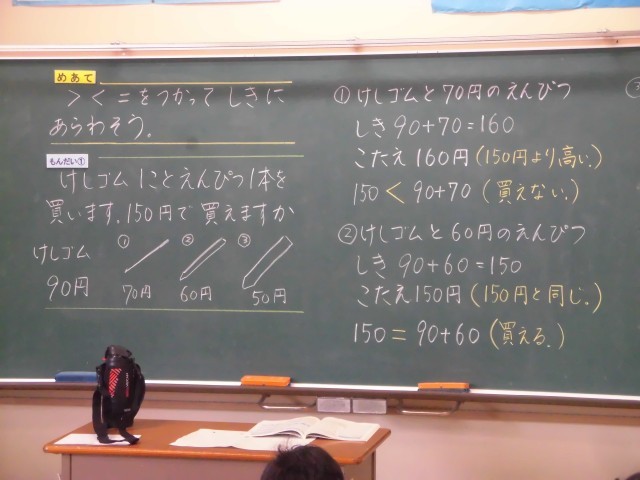 めあて
＞＜＝をつかってしきに
あらわそう。
もんだい①
けしゴム1ことえんぴつ1本を
買います。150円で買えますか
けしゴム
90円
① ② ③
70円 60円 50円
①けしゴムと70円のえんぴつ
しき90+70=160
こたえ160円(150円より高い。)
150＜90+70(買えない。)
②けしゴムと60円のえんぴつ
しき90+60=150
こたえ150円(150円と同じ。)
150=90+60(買える。)
③